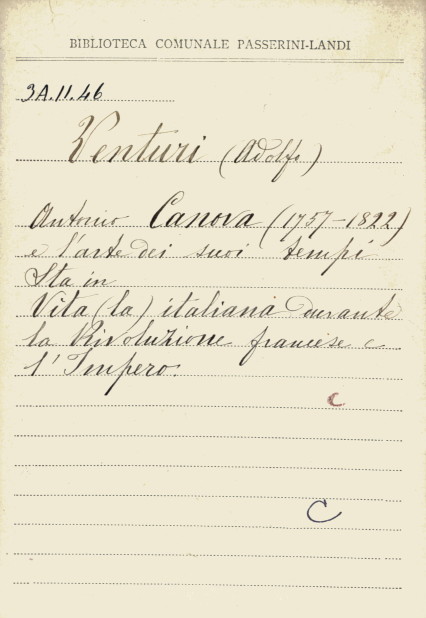 BIBLIOTECA COMUNALE PASSERINI-LANDI
3A.11.46
Venturi (Adolfo)
Antonio Canova (1757-1822)
e l'arte dei suoi tempi
Sta in
Vita (la) italiana durante
la Rivoluzione francese e
l'Impero.
C
C